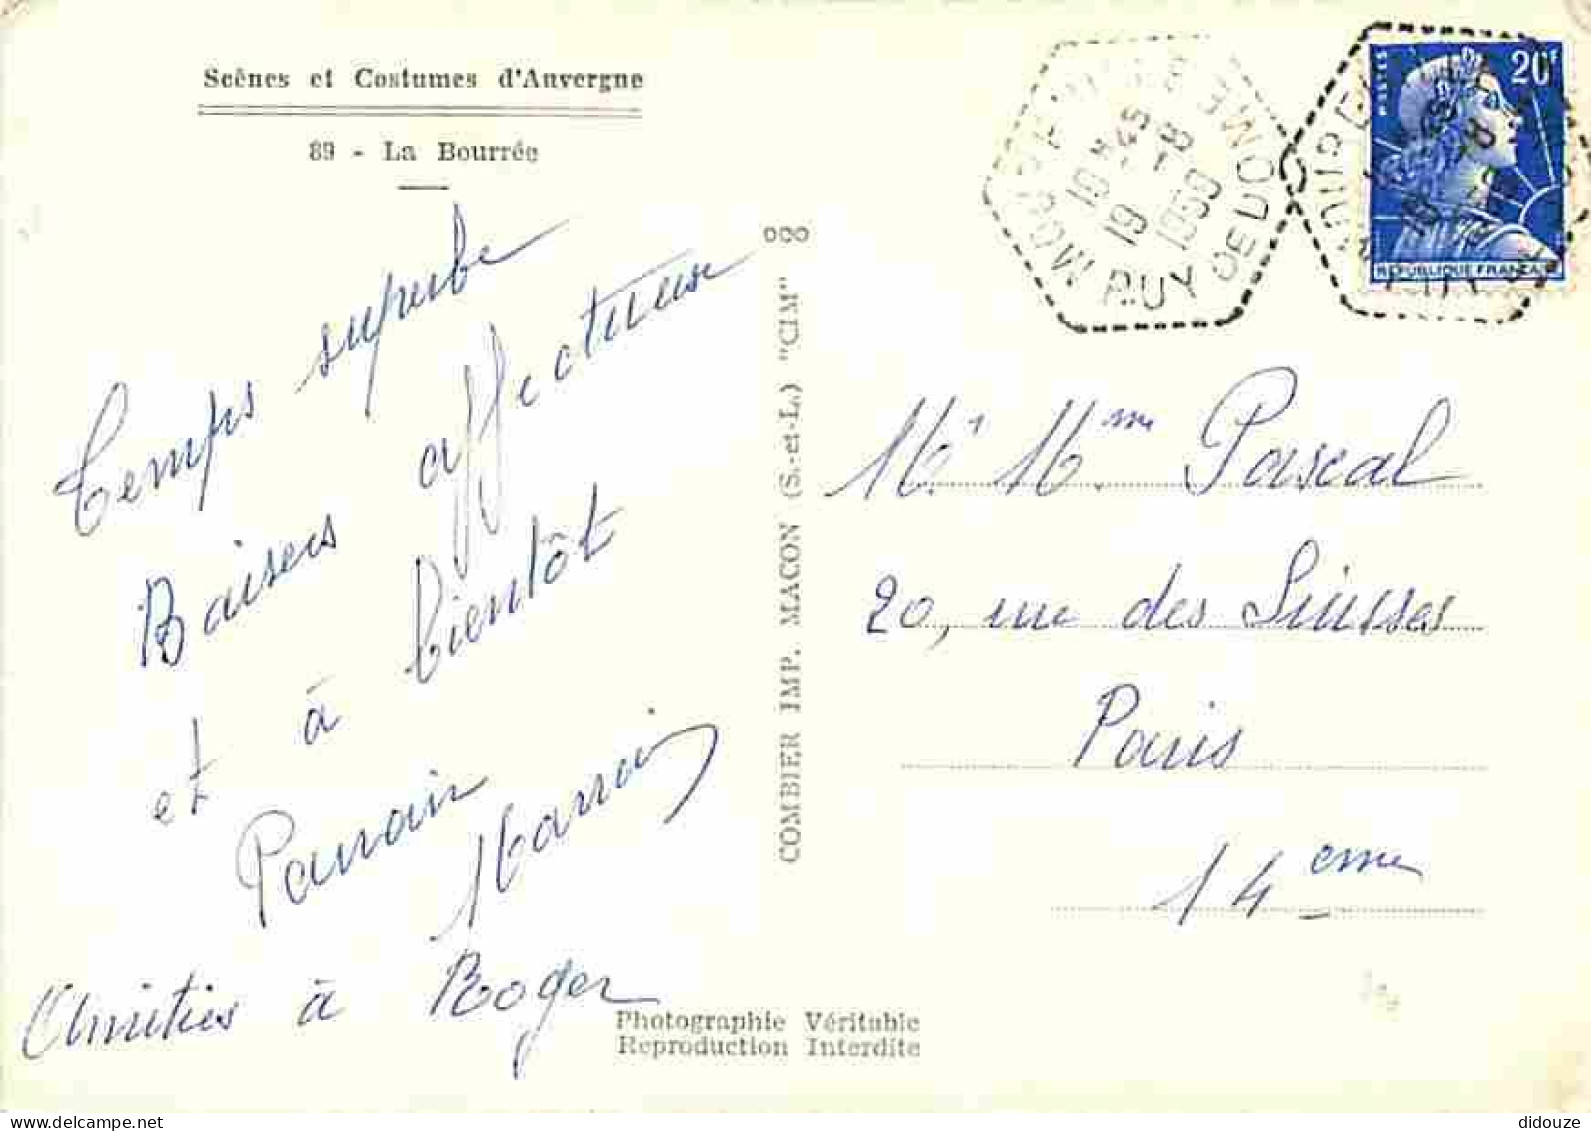 Scènes et Costumes d'Auvergne
89 - La Bourrée
Temps superbe
Baisers affectueux
et à bientôt
Parrain
Amitiés à Roger
Photographie Véritable
Reproduction Interdite
COMBIER IMP. MACON (S.-et-L.) "CIM"
PUY DE DOME
19 - 8
1959
POSTES
20F
REPUBLIQUE FRANCAISE
Mr. Mme. Pascal
20, rue des Suisses
Paris
14 eme
didouze